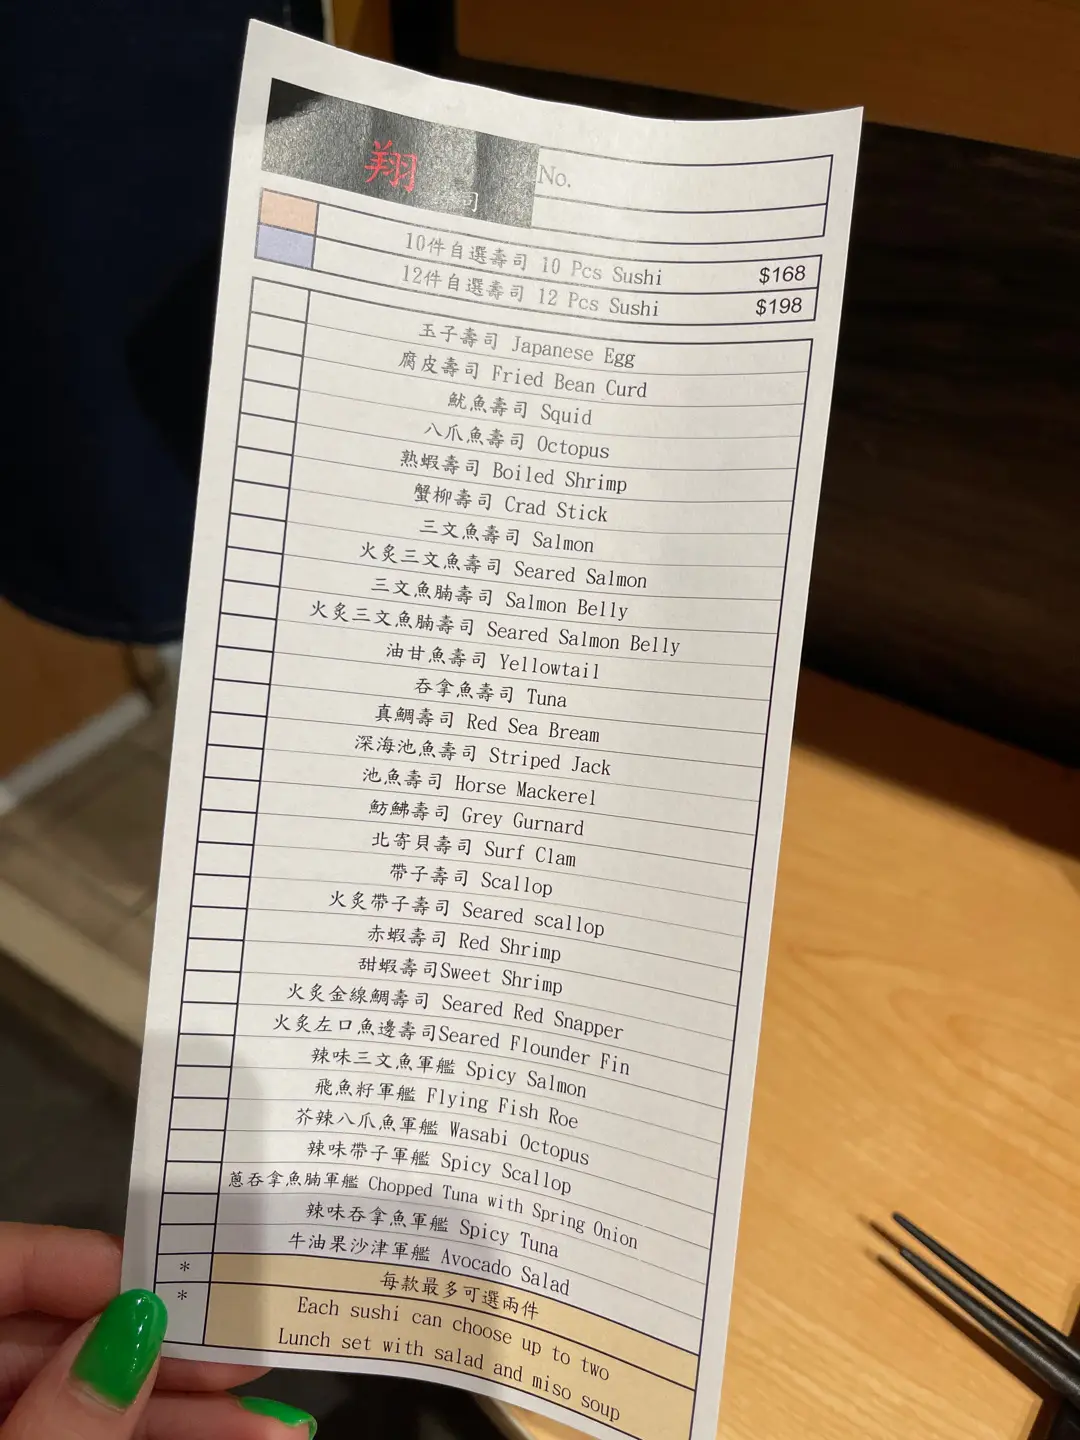 翔
司
No.
10件自選壽司 10 Pcs Sushi $168
12件自選壽司 12 Pcs Sushi $198
玉子壽司 Japanese Egg
腐皮壽司 Fried Bean Curd
魷魚壽司 Squid
八爪魚壽司 Octopus
熟蝦壽司 Boiled Shrimp
蟹柳壽司 Crad Stick
三文魚壽司 Salmon
火炙三文魚壽司 Seared Salmon
三文魚腩壽司 Salmon Belly
火炙三文魚腩壽司 Seared Salmon Belly
油甘魚壽司 Yellowtail
吞拿魚壽司 Tuna
真鯛壽司 Red Sea Bream
深海池魚壽司 Striped Jack
池魚壽司 Horse Mackerel
魴鮄壽司 Grey Gurnard
北寄貝壽司 Surf Clam
帶子壽司 Scallop
火炙帶子壽司 Seared scallop
赤蝦壽司 Red Shrimp
甜蝦壽司Sweet Shrimp
火炙金線鯛壽司 Seared Red Snapper
火炙左口魚邊壽司Seared Flounder Fin
辣味三文魚軍艦 Spicy Salmon
飛魚籽軍艦 Flying Fish Roe
芥辣八爪魚軍艦 Wasabi Octopus
辣味帶子軍艦 Spicy Scallop
蔥吞拿魚腩軍艦 Chopped Tuna with Spring Onion
辣味吞拿魚軍艦 Spicy Tuna
牛油果沙津軍艦 Avocado Salad
* 每款最多可選兩件
* Each sushi can choose up to two
Lunch set with salad and miso soup